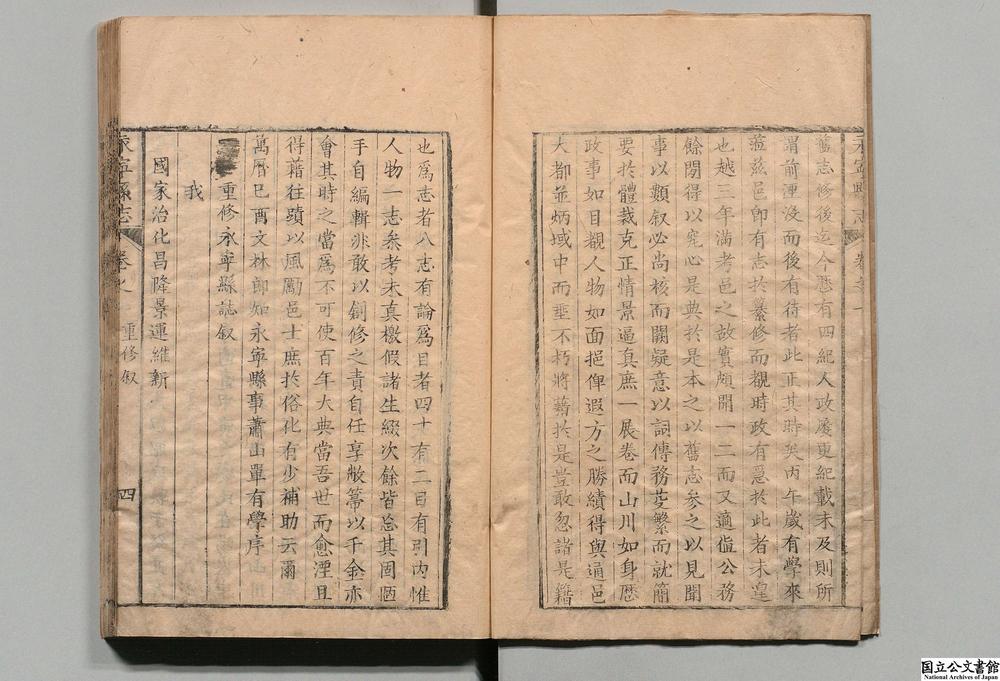 舊志修後迄今應有四紀人政屡更紀載未及則所
謂前湮没而後有待者此正其時矣丙午歲有學來
蒞兹邑即有志於纂修而觀時政有急於此者未遑
也越三年滿考邑之故實頗聞一二而又適值公務
餘閒得以究心是典於是本之以舊志參之以見聞
事以類叙必尚核而闕疑意以詞傳務芟繁而就簡
要於體裁克正情景逼真庶一展卷而山川如身歷
政事如目覩人物如面挹俾遐方之勝績得與通邑
大都並炳域中而垂不朽將藉於是豈敢忽諸是籍
永寧縣志 卷之一
也爲志者八志有論爲目者四十有二目有引内惟
人物一志叅考未真檄假諸生綴次餘皆忘其固陋
手自編輯非敢以創修之責自任享敝箒以千金亦
會其時之當爲不可使百年大典當吾世而愈湮且
得藉往蹟以風勵邑士庶於俗化有少補助云爾
萬曆己酉文林郎知永寧縣事蕭山單有學序
重修永寧縣誌叙
我
國家治化昌隆景運維新
永寧縣志 卷之一 重修叙 四
国立公文書館
National Archives of Japan